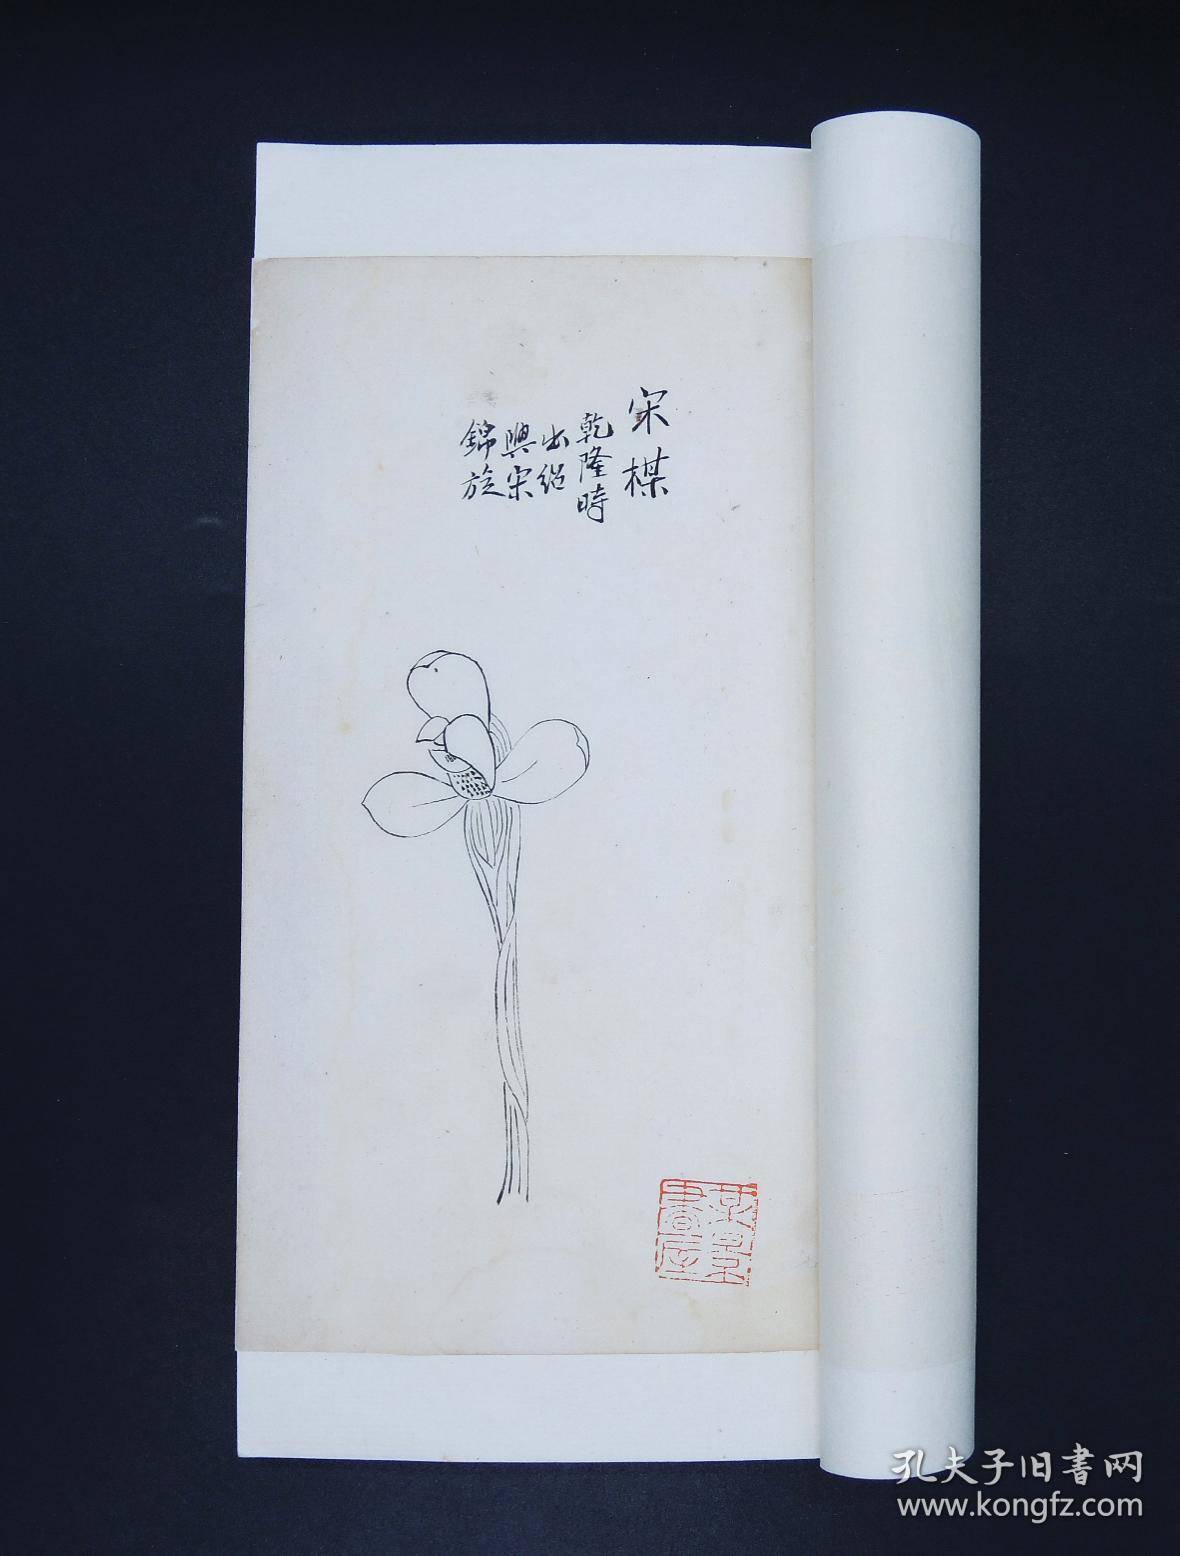 宋楳
乾隆時
出紹
興宋
錦旋
孔夫子旧書网
www.kongfz.com